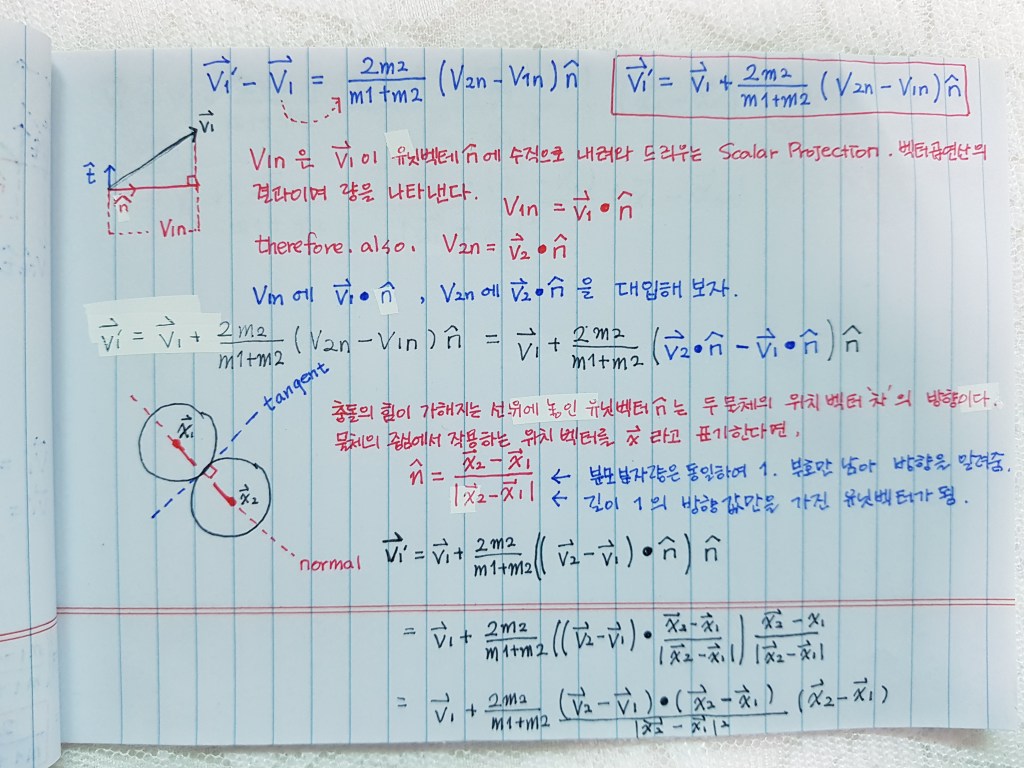 V⃗₁' - V⃗₁ = 2m2/(m1+m2) (V2n - V1n) n̂
V⃗₁' = V⃗₁ + 2m2/(m1+m2) (V2n - V1n) n̂
V⃗₁
t̂
n̂
V1n
V1n 은 V⃗₁ 이 유닛벡터 n̂ 에 수직으로 내려와 드리우는 Scalar Projection. 벡터곱연산의
결과이며 량을 나타낸다.
V1n = V⃗₁ • n̂
therefore. also. V2n = V⃗₂ • n̂
V1n 에 V⃗₁ • n̂ , V2n 에 V⃗₂ • n̂ 을 대입해 보자.
V⃗₁' = V⃗₁ + 2m2/(m1+m2) (V2n - V1n) n̂ = V⃗₁ + 2m2/(m1+m2) (V⃗₂ • n̂ - V⃗₁ • n̂) n̂
tangent
x⃗₁
x⃗₂
normal
충돌의 힘이 가해지는 선위에 놓인 유닛벡터 n̂ 는 두 물체의 위치벡터 '차'의 방향이다.
물체의 중심에서 작용하는 위치 벡터를 x⃗ 라고 표기한다면,
n̂ = (x⃗₂ - x⃗₁)/|x⃗₂ - x⃗₁| ← 분모분자량은 동일하여 1. 부호만 남아 방향을 알려줌.
← 길이 1의 방향값만을 가진 유닛벡터가 됨.
V⃗₁' = V⃗₁ + 2m2/(m1+m2) ((V⃗₂ - V⃗₁) • n̂) n̂
= V⃗₁ + 2m2/(m1+m2) ((V⃗₂ - V⃗₁) • (x⃗₂ - x⃗₁)/|x⃗₂ - x⃗₁|) (x⃗₂ - x₁)/|x⃗₂ - x⃗₁|
= V⃗₁ + 2m2/(m1+m2) (V⃗₂ - V⃗₁) • (x⃗₂ - x⃗₁)/|x⃗₂ - x⃗₁|² (x⃗₂ - x⃗₁)